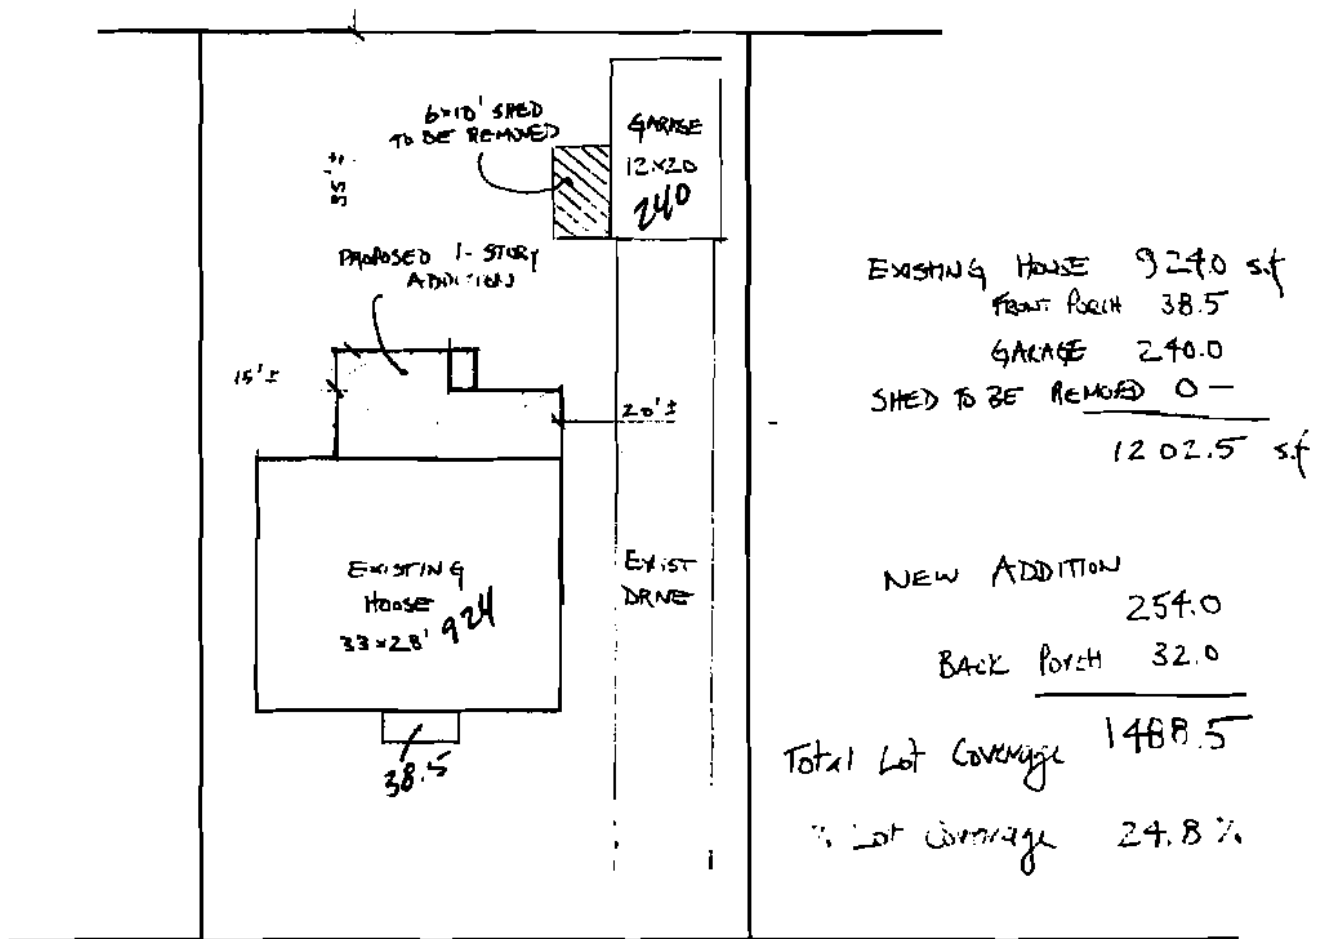 6x10' SHED
TO BE REMOVED
GARAGE
12x20
240
35'±
PROPOSED 1-STORY
ADDITION
15'±
20'±
EXISTING
HOUSE
33x28' 924
EXIST
DRIVE
38.5
EXISTING HOUSE 924.0 s.f
FRONT PORCH 38.5
GARAGE 240.0
SHED TO BE REMOVED 0 —
1202.5 s.f
NEW ADDITION
254.0
BACK PORCH 32.0
Total Lot Coverage 1488.5
% Lot Coverage 24.8 %